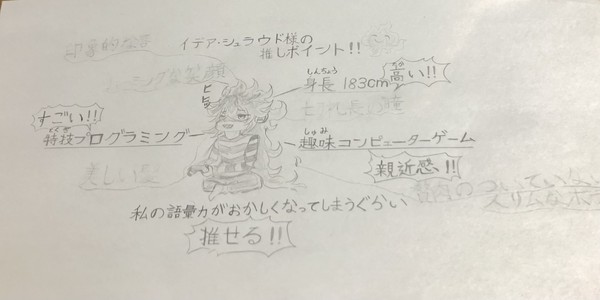 イデア・シュラウド様の
推しポイント!!
印象的な
な笑顔
しんちょう
身長 183cm
高い!!
すごい!!
特技プログラミング
しゅみ
趣味コンピューターゲーム
親近感!!
美しい
筋肉のついていない
スリムなボ
私の語彙力がおかしくなってしまうぐらい
推せる!!